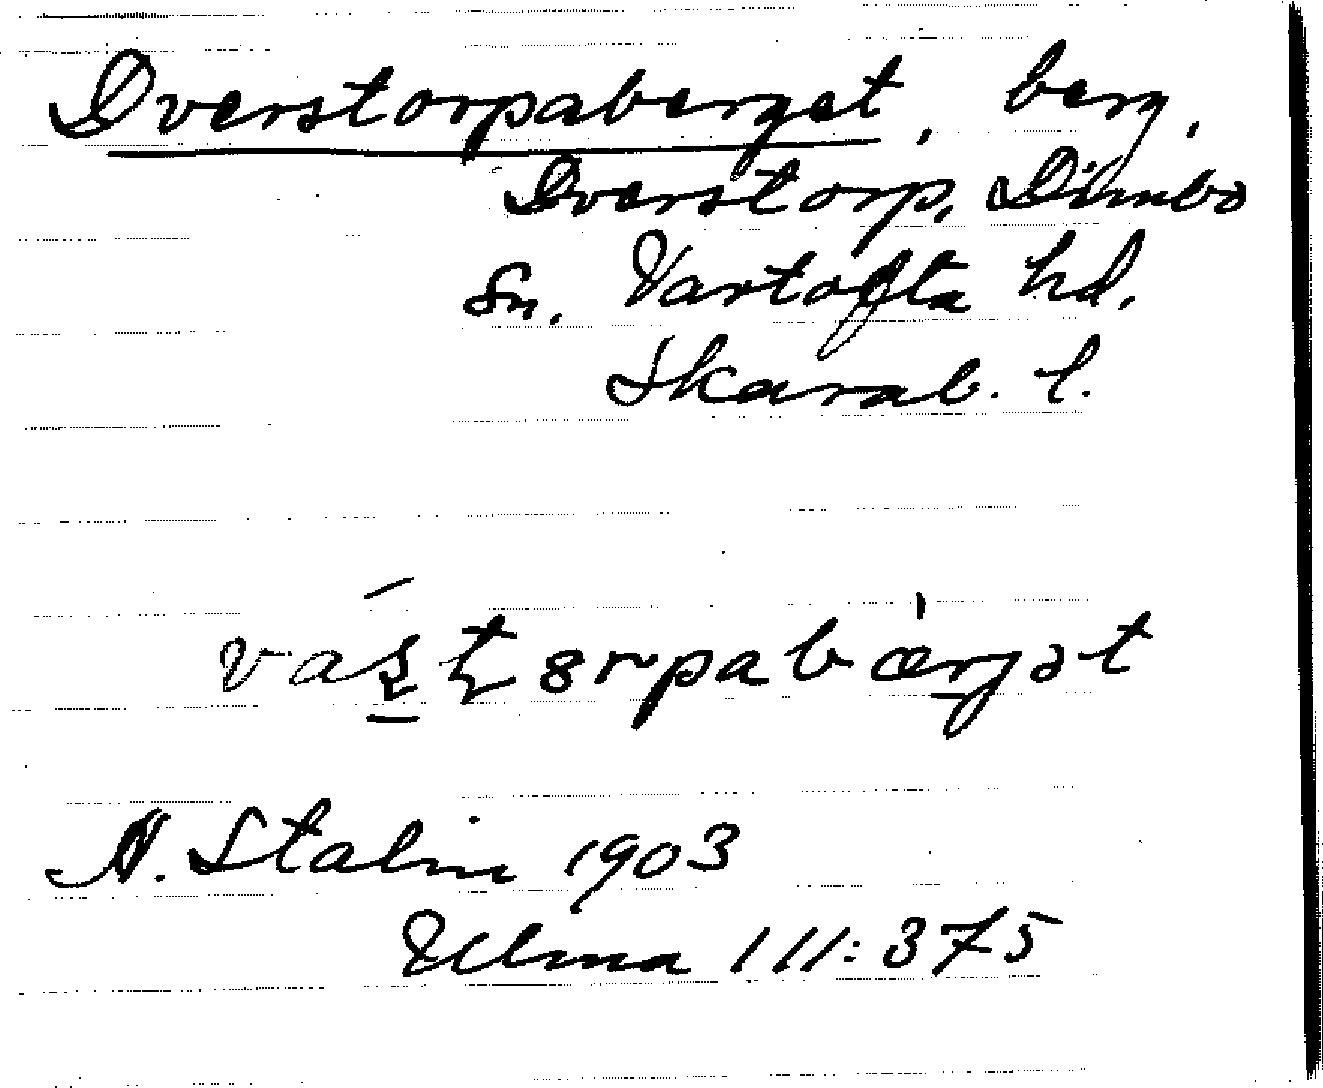 Dverstorpaberget, berg,
Dverstorp, Dimbo
sn. Vartofta hd.
Skarab. l.
N. Stalin 1903
Ulma 111:375